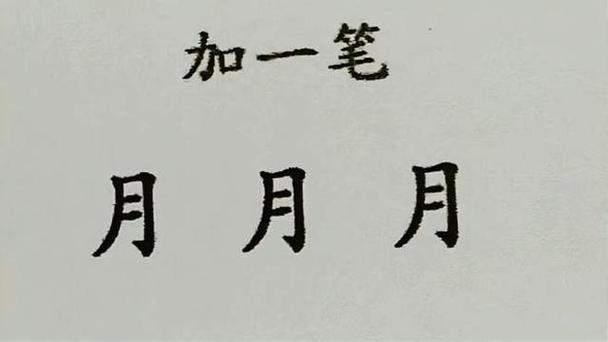 加一笔
月 月 月